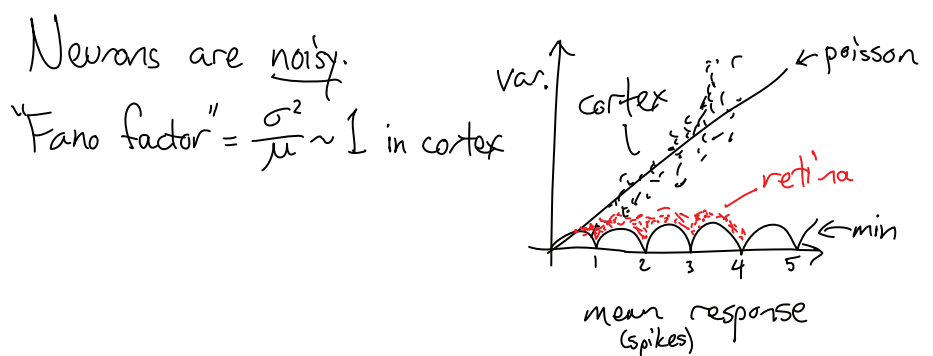 Neurons are noisy.
"Fano factor" = σ²/μ ~ 1 in cortex
var.
cortex
← poisson
retina
← min
1 2 3 4 5
mean response
(spikes)